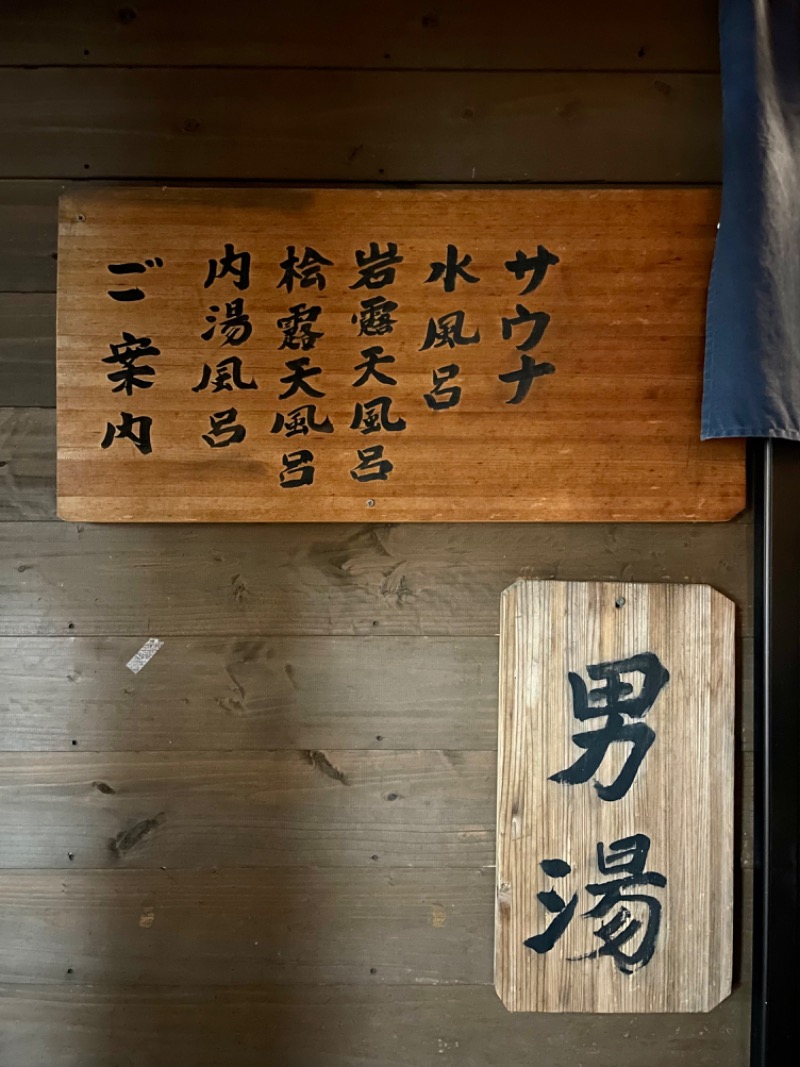 ご案内
内湯風呂
桧露天風呂
岩露天風呂
水風呂
サウナ
男湯